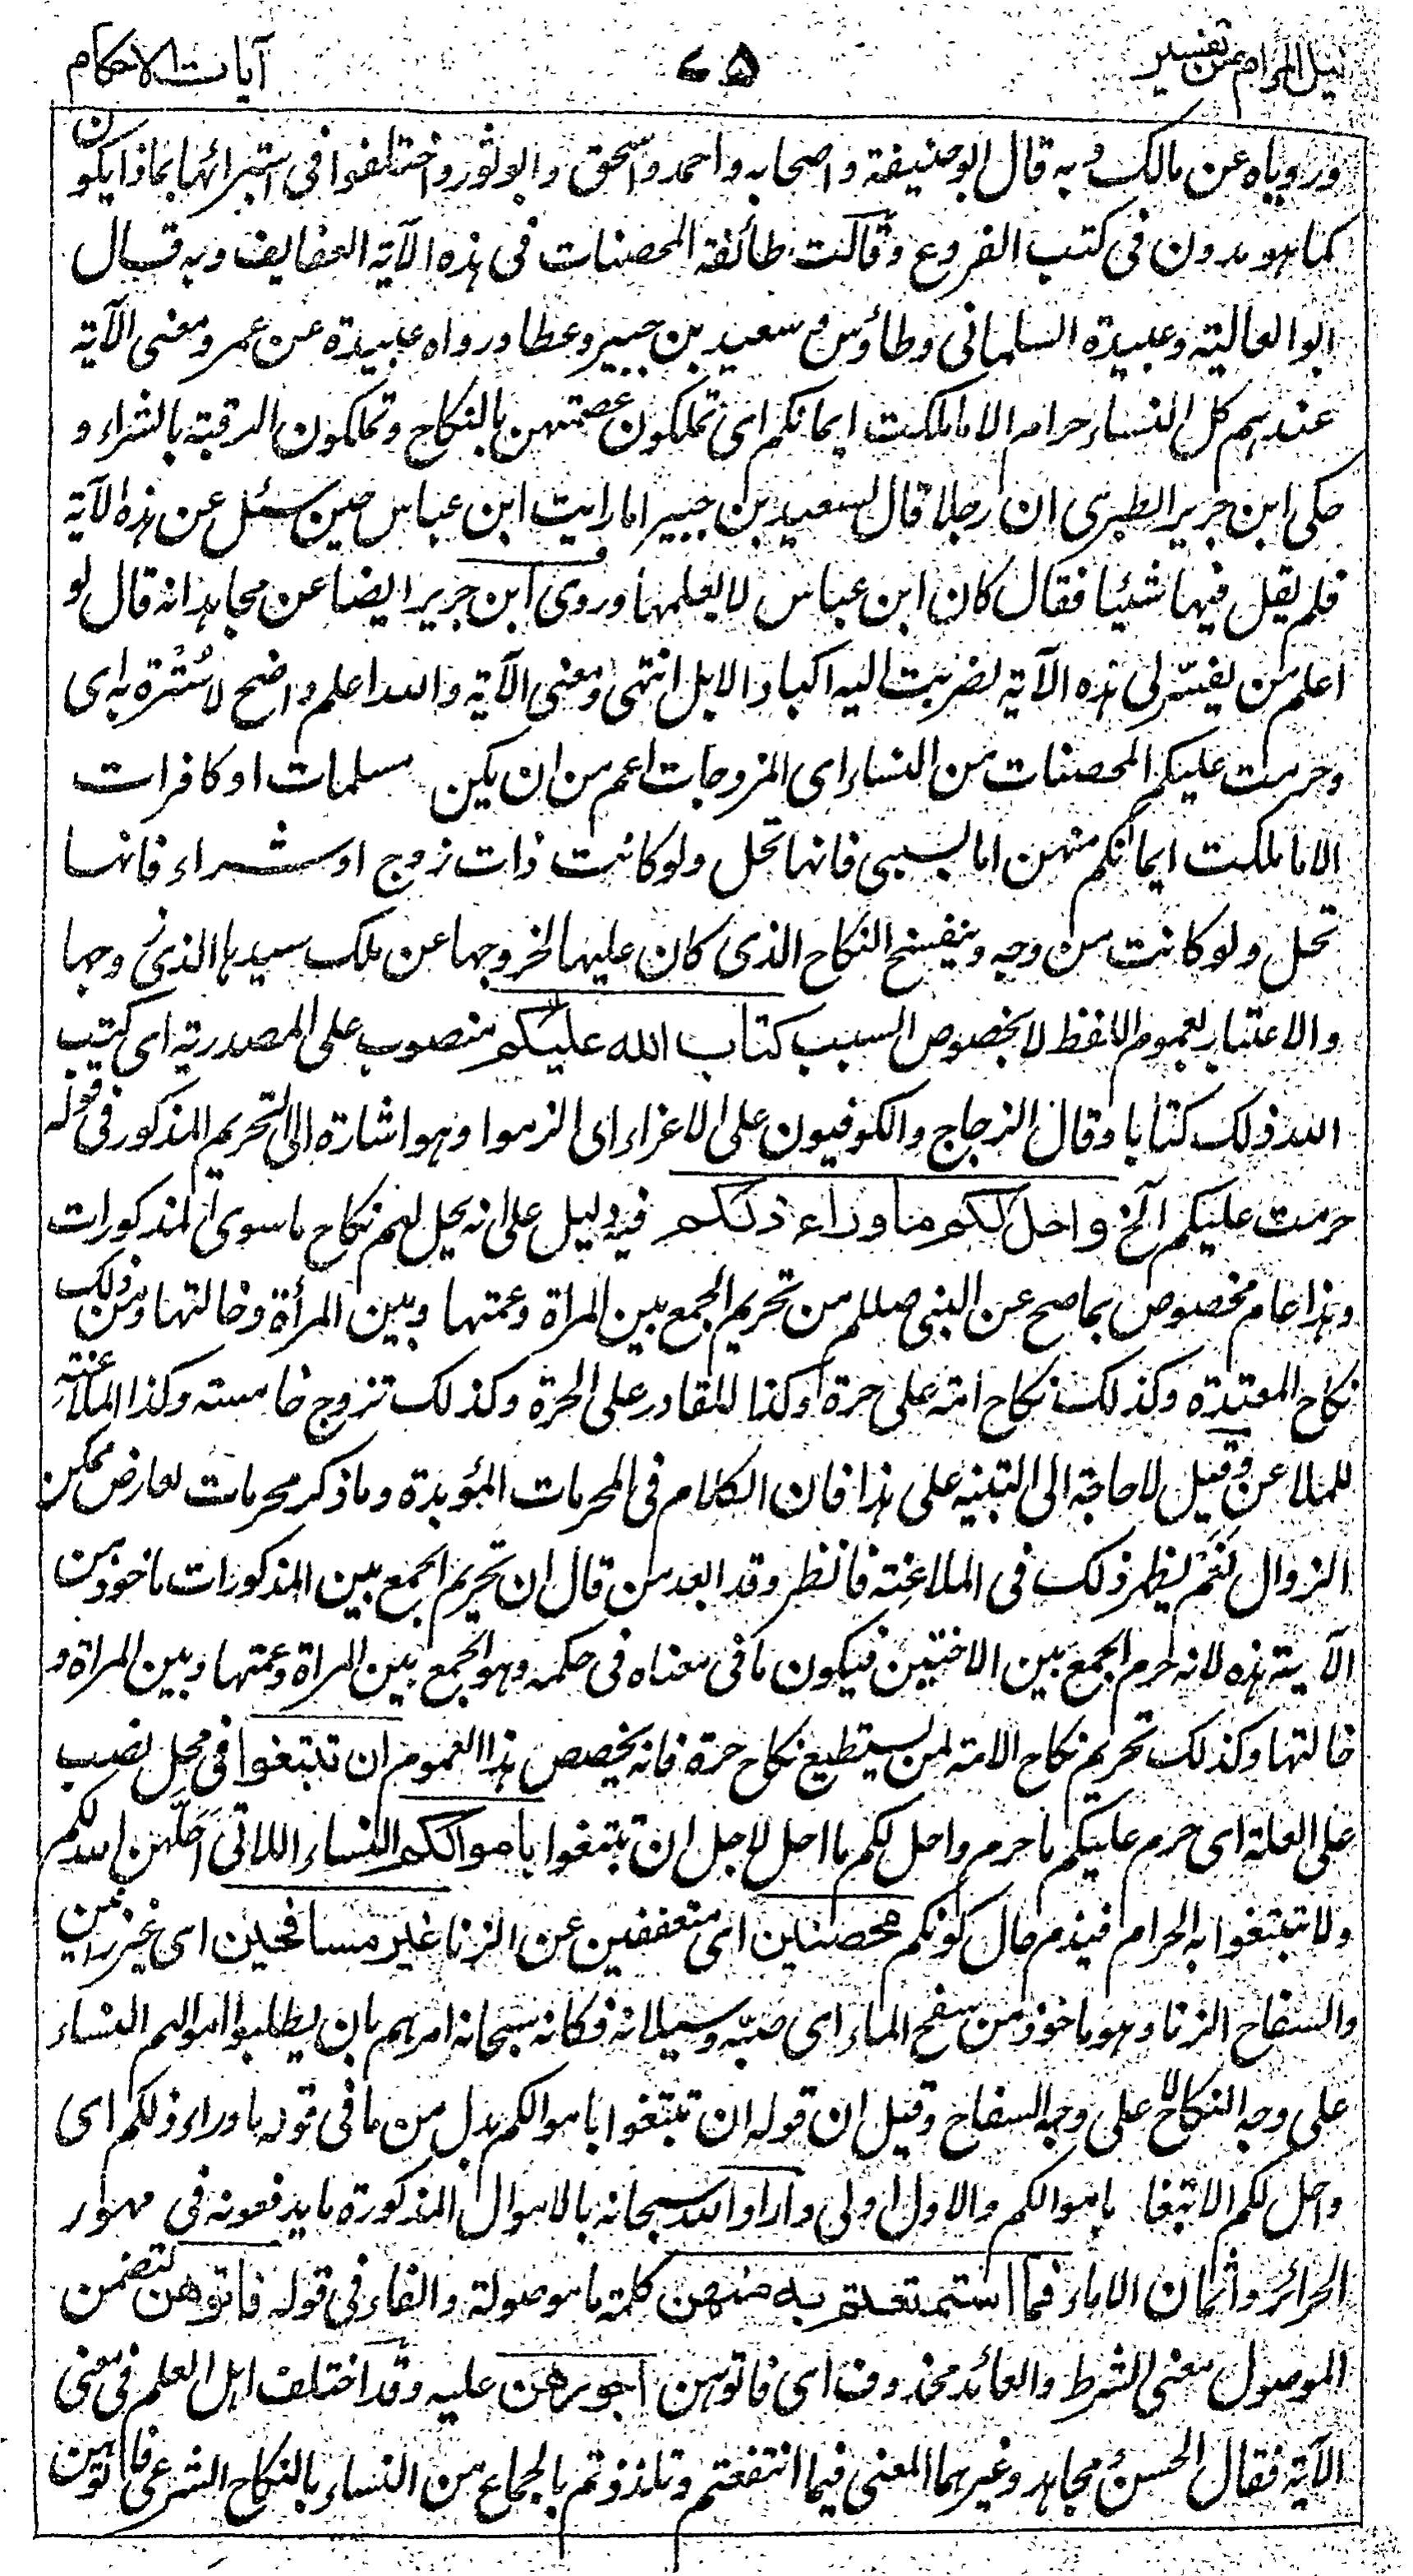 نيل المرام من تفسير
٧٥
آيات الاحكام
وروياه عن مالك وبه قال ابو حنيفة واصحابه واحمد واسحق وابو ثور واختلفوا فى استبرائها بماذا يكون
كما هو مدون فى كتب الفروع وقالت طائفة المحصنات فى هذه الآية العفايف وبه قال
ابو العالية وعبيدة السلمانى وطاؤس وسعيد بن جبير وعطاء ورواه عبيدة عن عمر ومعنى الآية
عندهم كل النساء حرام الا ما ملكت ايمانكم اى تملكون عصمتهن بالنكاح وتملكون الرقبة بالشراء و
حكى ابن جرير الطبرى ان رجلا قال لسعيد بن جبير اما رايت ابن عباس حين سئل عن هذه الآية
فلم يقل فيها شيئا فقال كان ابن عباس لا يعلمها وروى ابن جرير ايضا عن مجاهد انه قال لو
اعلم من يفسّر لى هذه الآية لضربت اليه اكباد الابل انتهى ومعنى الآية والله اعلم واضح لا سُتْرة به اى
وحرمت عليكم المحصنات من النساء اى المزوجات اعم من ان يكن مسلمات او كافرات
الا ما ملكت ايمانكم منهن اما بسبى فانها تحل ولو كانت ذات زوج او شراء فانها
تحل ولو كانت مزوجه وينفسخ النكاح الذى كان عليها لخروجها عن ملك سيدها الذى زوجها
والاعتبار بعموم اللفظ لا بخصوص السبب كتاب الله عليكم منصوب على المصدرية اى كتب
الله ذلك كتابا وقال الزجاج والكوفيون على الاغراء اى الزموا وهو اشارة الى التحريم المذكور فى قوله
حرمت عليكم الخ واحل لكم ما وراء ذلكم فيه دليل على انه يحل لهم نكاح ما سوى المذكورات
وهذا عام مخصوص بما صح عن النبى صللم من تحريم الجمع بين المراة وعمتها وبين المرأة وخالتها ومن ذلك
نكاح المعتدة وكذلك نكاح امة على حرة وكذا للقادر على الحرة وكذلك تزوج خامسة وكذا الملاعنة
للملاعن وقيل لا حاجة الى التنبيه على هذا فان الكلام فى المحرمات المؤبدة وما ذكر محرمات لعارض ممكن
الزوال نعم يظهر ذلك فى الملاعنة فانظر وقد ابعد من قال ان تحريم الجمع بين المذكورات ماخوذ من
الآية هذه لانه حرم الجمع بين الاختين فيكون ما فى معناه فى حكمه وهو الجمع بين المراة وعمتها وبين المراة و
خالتها وكذلك تحريم نكاح الامة لمن يستطيع نكاح حرة فانه يخصص هذا العموم ان تبتغوا فى محل نصب
على العلة اى حرم عليكم ما حرم واحل لكم ما احل لاجل ان تبتغوا باموالكم النساء اللاتى اَحَلّهن الله لكم
ولا تبتغوا به الحرام فيذم حال كونكم محصنين اى متعففين عن الزنا غير مسافحين اى غير زانين
والسفاح الزنا وهو ماخوذ من سفح الماء اى صبّه وسيلانه فكانه سبحانه امرهم بان يطلبوا اموالهم النساء
على وجه النكاح لا على وجه السفاح وقيل ان قوله ان تبتغوا باموالكم بدل من ما فى قوله ما وراء ذلكم اى
واحل لكم الابتغاء باموالكم والاول اولى واراد الله سبحانه بالاموال المذكورة ما يدفعونه فى مهور
الحرائر واثمان الاماء فما استمتعتم به منهن كلمة ما موصولة والفاء فى قوله فاتوهن لتضمن
الموصول معنى الشرط والعائد محذوف اى فاتوهن اجورهن عليه وقد اختلف اهل العلم فى معنى
الآية فقال الحسن ومجاهد وغيرهما المعنى فيما انتفعتم وتلذذتم بالجماع من النساء بالنكاح الشرعى فاتوهن